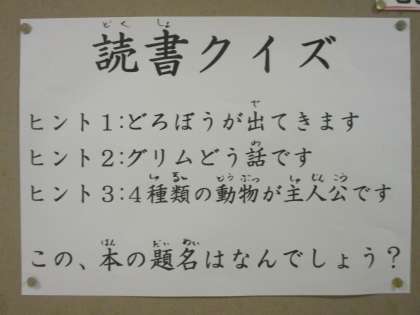 読書クイズ
ヒント1:どろぼうが出てきます
ヒント2:グリムどう話です
ヒント3:4種類の動物が主人公です
この、本の題名はなんでしょう？